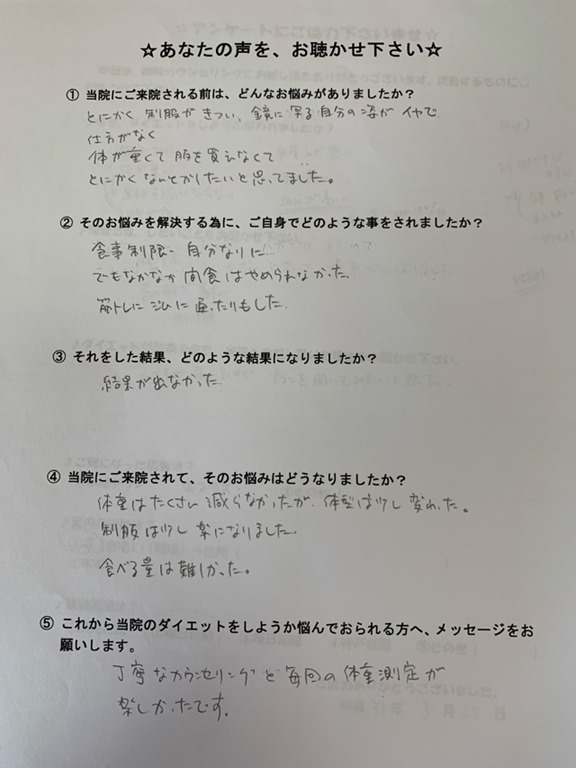 ☆あなたの声を、お聴かせ下さい☆
① 当院にご来院される前は、どんなお悩みがありましたか？
とにかく 制服がきつい、鏡に写る自分の姿がイヤで
仕方がなく
体が重くて 服を買えなくて
とにかくなんとかしたいと思ってました。
② そのお悩みを解決する為に、ご自身でどのような事をされましたか？
食事制限- 自分なりに
でもなかなか 間食はやめられなかった。
筋トレに ジムに 通ったりもした。
③ それをした結果、どのような結果になりましたか？
結果が出なかった
④ 当院にご来院されて、そのお悩みはどうなりましたか？
体重はたくさん 減らなかったが、体型は少し 変わった。
制服は少し 楽になりました
食べる量は難しかった。
⑤ これから当院のダイエットをしようか悩んでおられる方へ、メッセージをお
願いします。
丁寧なカウンセリングと毎回の体重測定が
楽しかったです。